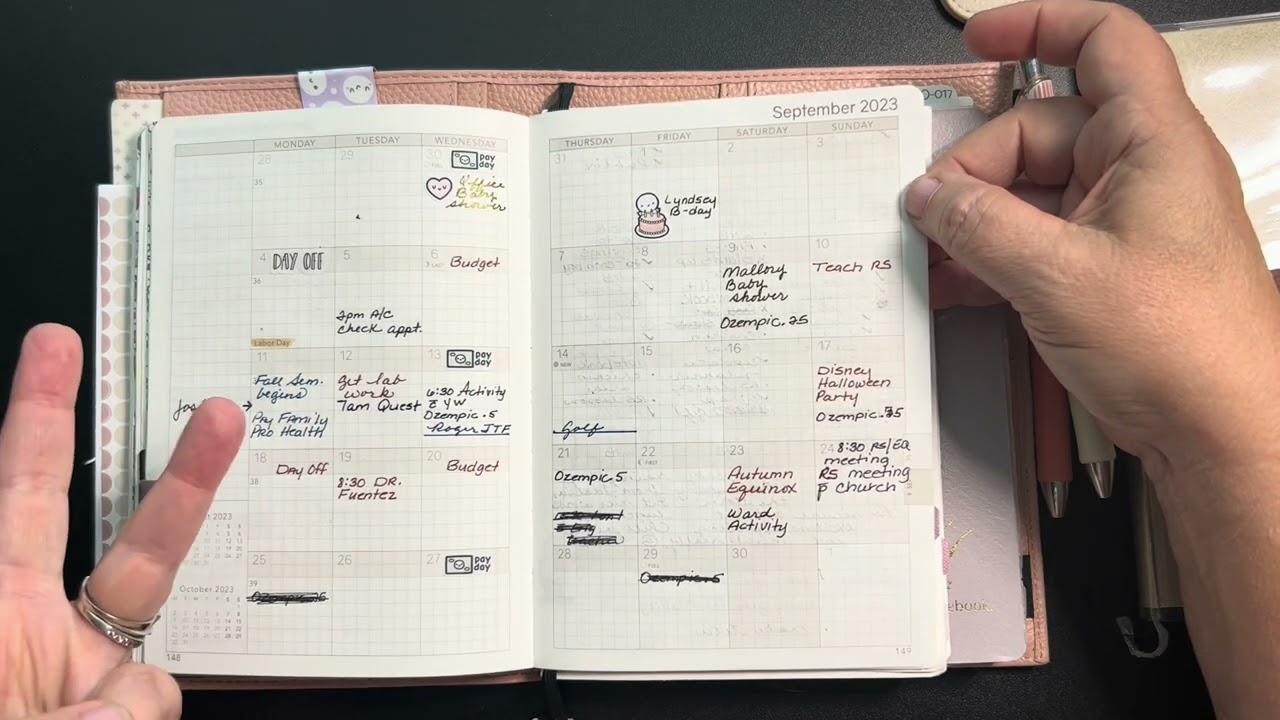 September 2023
O-017
MONDAY
TUESDAY
WEDNESDAY
THURSDAY
FRIDAY
SATURDAY
SUNDAY
28
29
30
pay
day
Office
Baby
Shower
31
1
Lyndsey
B-day
2
3
35
4
DAY OFF
Labor Day
5
2pm A/C
check appt.
6
LAST
Budget
7
8
9
Mallory
Baby
Shower
Ozempic .25
10
Teach RS
36
11
Fall Sem.
begins
Pay Family
Pro Health
12
Get lab
work
7am Quest
13
pay
day
6:30 Activity
c̄ YW
Ozempic .5
Roger JTF
14
NEW
Golf
15
16
17
Disney
Halloween
Party
Ozempic .75
18
Day Off
38
19
8:30 DR.
Fuentez
20
Budget
21
Ozempic 5
22
FIRST
23
Autumn
Equinox
Ward
Activity
24
8:30 RS/EQ
meeting
RS meeting
p̄ church
25
39
26
27
pay
day
28
29
FULL
Ozempic .5
30
2023
October 2023
148
149
ebook